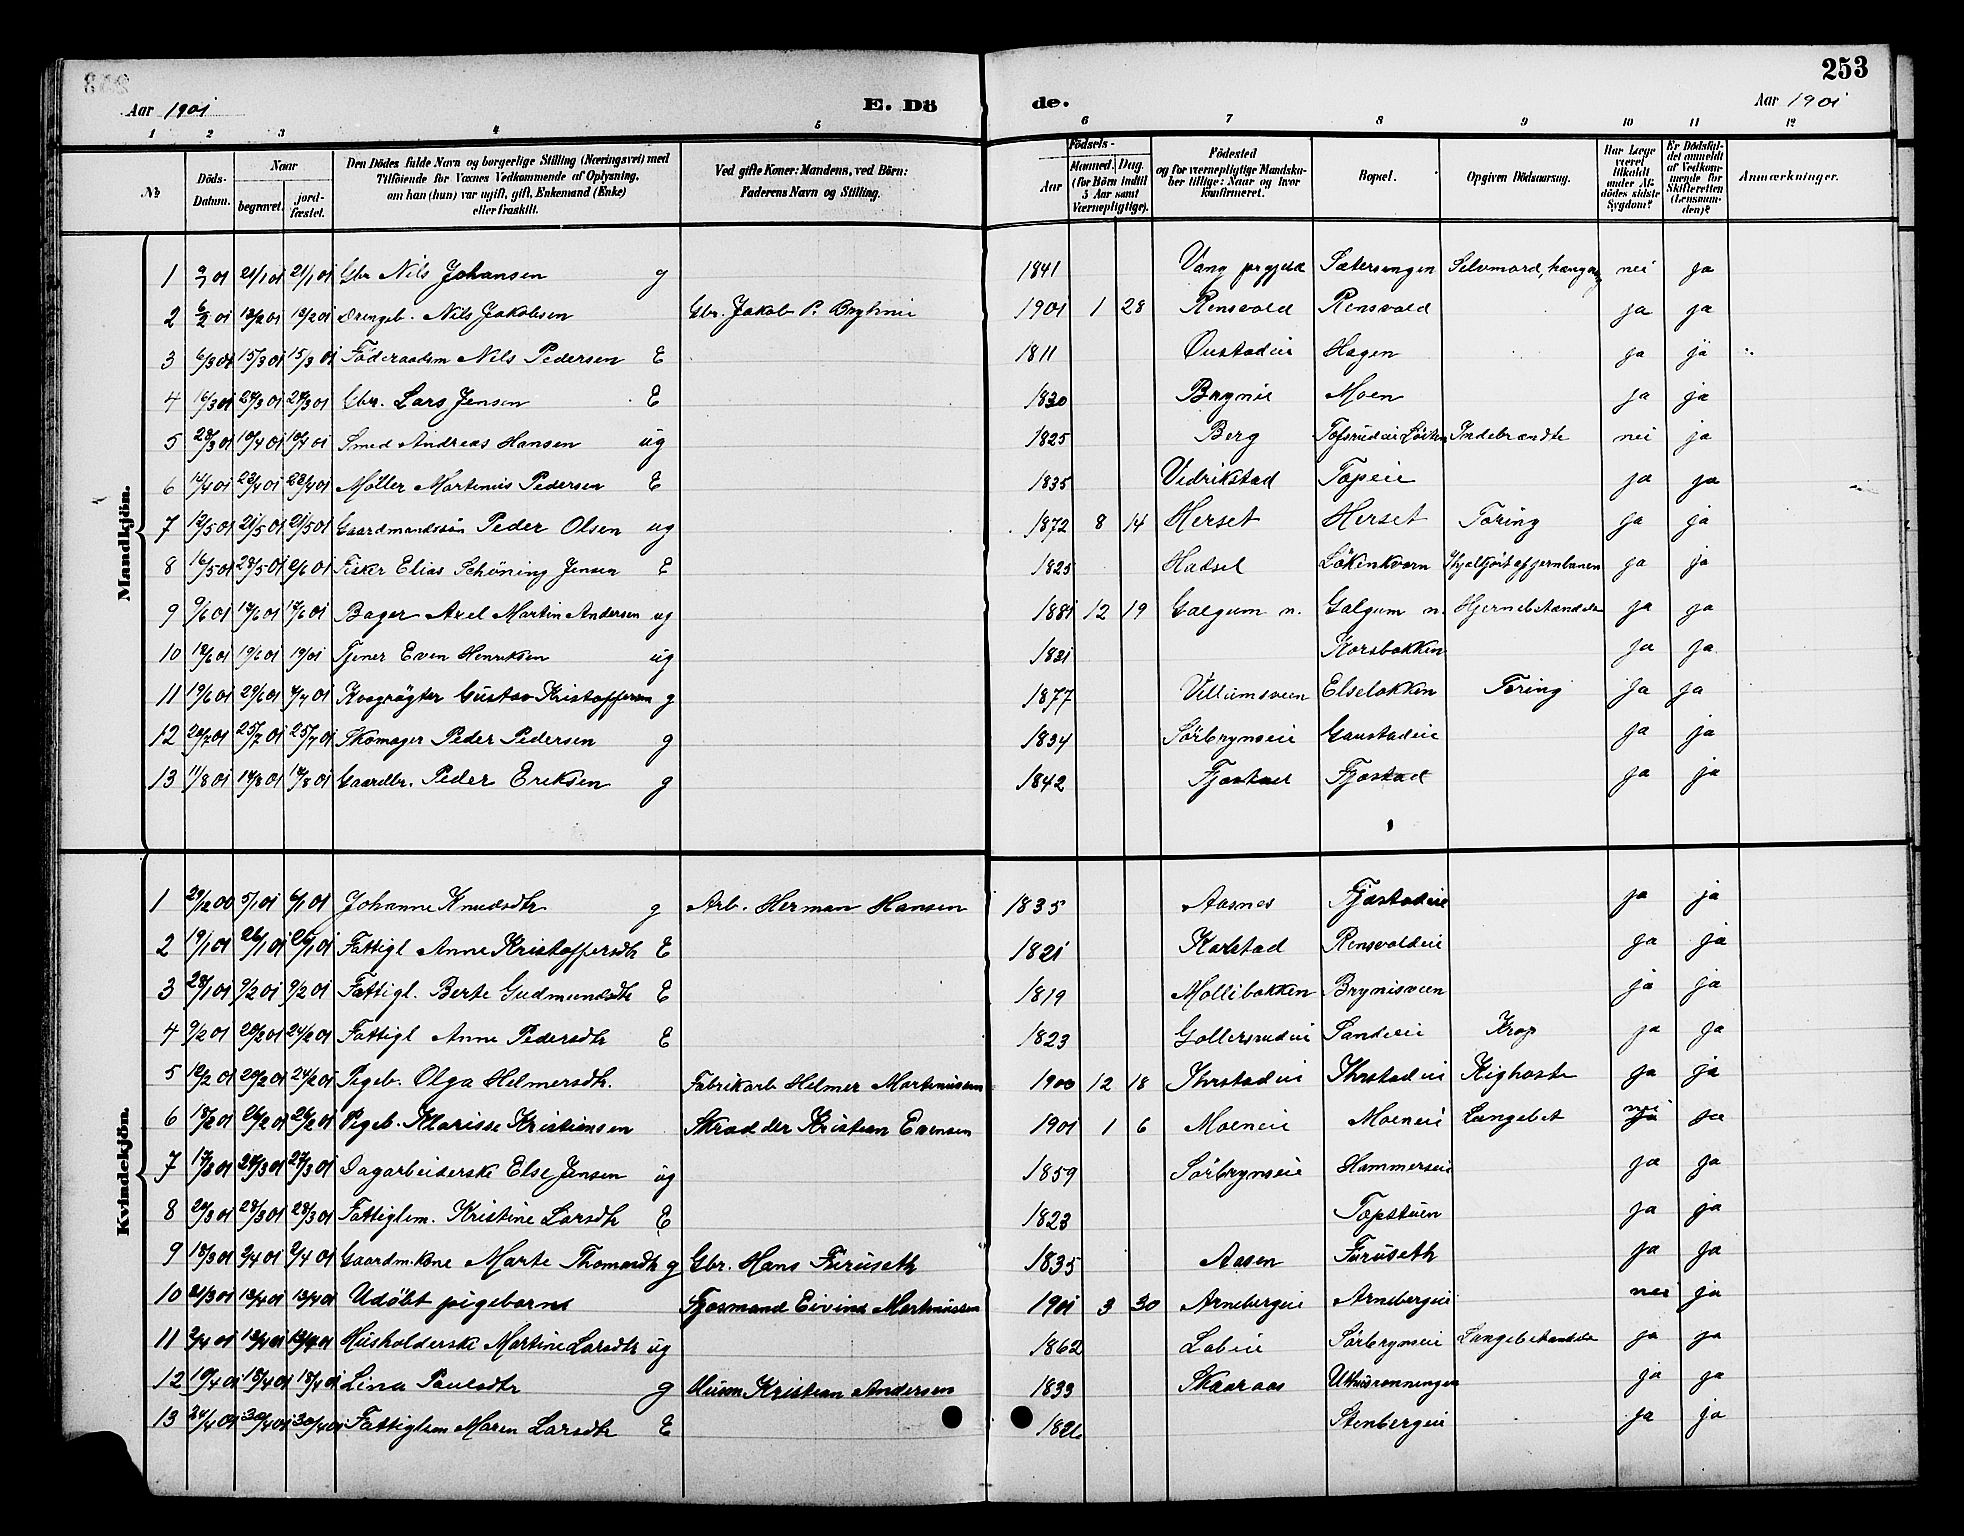 253
Aar 1901 E. Dö
de. Aar 1901
1 2 3 4 5 6 7 8 9 10 11 12
№
Döds-Datum.
Naar
begravet.
jord-fæstet.
Den Dödes fulde Navn og borgerlige Stilling (Næringsvei) med
Tilföiende for Voxnes Vedkommende af Oplysning,
om han (hun) var ugift, gift, Enkemand (Enke)
eller fraskilt.
Ved gifte Koner: Mandens, ved Börn:
Faderens Navn og Stilling.
Födsels-
Aar
Maaned. Dag.
(for Börn indtil
5 Aar samt
Værnepligtige).
Födested
og for værnepligtige Mandska-
ber tillige: Naar og hvor
konfirmeret.
Bopæl.
Opgiven Dödsaarsag.
Har Læge
været
tilkaldt
under Af-
dödes sidste
Sygdom?
Er Dödsfal-
det anmeldt
af Vedkom-
mende for
Skifteretten
(Lensman-
den)?
Anmærkninger.
Mandkjön.
1 9/1 01 21/1 01 21/1 01 Gbr Nils Johansen g 1841 Vang prgjeld Sætersengen Selvmord, hængning nei ja
2 6/2 01 13/2 01 13/2 01 Drengeb. Nils Jakobsen Gbr. Jakob P. Brynie 1901 1 28 Rensvold Rensvold ja ja
3 6/3 01 15/3 01 15/3 01 Föderaadsm Nils Pedersen E 1811 Oustadeie Hagen ja ja
4 16/3 01 27/3 01 27/3 01 Gbr. Lars Jensen E 1830 Brynie Moen ja ja
5 28/3 01 10/4 01 10/4 01 Smed Andreas Hansen ug 1825 Berg Tofsrudeie Löiten Indebrændte nei ja
6 14/4 01 23/4 01 23/4 01 Möller Martinius Pedersen E 1835 Vedrikstad Topeie ja ja
7 12/5 01 21/5 01 21/5 01 Gaardmandssön Peder Olsen ug 1872 8 14 Herset Herset Tæring ja ja
8 16/5 01 28/5 01 2/6 01 Fisker Elias Schöning Jensen E 1825 Hadsel Lökenkvern Ihjelkjört af jernbanen ja ja
9 9/6 01 17/6 01 17/6 01 Bager Axel Martin Andersen ug 1881 12 19 Galgum n. Galgum n. Hjernebetændelse ja ja
10 12/6 01 19/6 01 19/01 Tjener Even Henriksen ug 1821 Korsbakken ja ja
11 19/6 01 29/6 01 7/7 01 Kvægrögter Gustav Kristoffersen g 1877 Villumsveen Elselokken Tæring ja ja
12 20/7 01 25/7 01 25/7 01 Skomager Peder Pedersen g 1834 Sörbrynseie Gaustadeie ja ja
13 11/8 01 17/8 01 17/8 01 Gaardbr. Peder Eriksen g 1842 Fjæstad Fjæstad ja ja
Kvindekjön.
1 29/12 00 5/1 01 6/1 01 Johanne Knudsdtr g Arb. Herman Hansen 1835 Aasnes Fjæstadeie ja ja
2 19/1 01 26/1 01 26/1 01 Fattigl Anne Kristoffersdtr E 1821 Karlstad Rensvoldeie ja ja
3 28/1 01 9/2 01 9/2 01 Fattigl. Berte Gudmundsdtr E 1819 Mollibakken Brynisveen ja ja
4 9/2 01 20/2 01 24/2 01 Fattigl Anne Pedersdtr E 1823 Gollersrudeie Sandeie Krop ja ja
5 12/2 01 20/2 01 24/2 01 Pigeb. Olga Helmersdtr. Fabrikarb Helmer Martinussen 1900 12 18 Thrstadeie Thrstadeie Kighoste ja ja
6 18/2 01 26/2 01 26/2 01 Pigeb. Marisse Kristiansen Skrædder Kristian Evensen 1901 1 6 Moeneie Moeneie Lungebet nei ja
7 17/3 01 27/3 01 27/3 01 Dagarbeiderske Else Jensen ug 1859 Sörbrynseie Hammerseie ja ja
8 20/3 01 28/3 01 28/3 01 Fattiglem. Kristine Larsdtr E 1823 Topstuen ja ja
9 18/3 01 2/4 01 2/4 01 Gaardm.kone Marte Thomasdtr g Gbr. Hans Furuseth 1835 Aasen Furuseth ja ja
10 31/3 01 13/4 01 13/4 01 Udöbt pigebarn Fjøsmand Eivind Martinussen 1901 3 30 Arnebergeie Arnebergeie nei ja
11 2/4 01 13/4 01 13/4 01 Husholderske Martine Larsdtr ug 1862 Labeie Sörbrynseie Lungebetændelse ja ja
12 10/4 01 18/4 01 18/4 01 Lina Paulsdtr g Husm Kristian Andersen 1833 Skaaraas Uthusrønningen ja ja
13 24/4 01 30/4 01 30/4 01 Fattiglem Maren Larsdtr E 1826 Stenbergeie ja ja